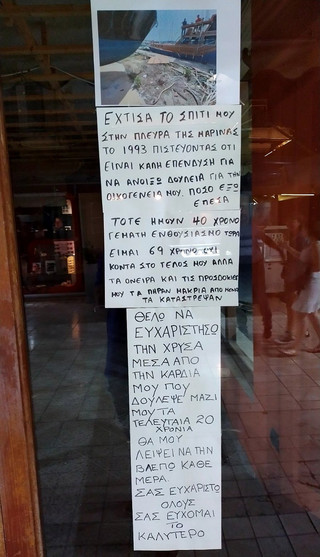 ΕΧΤΙΣΑ ΤΟ ΣΠΙΤΙ ΜΟΥ
ΣΤΗΝ ΠΛΕΥΡΑ ΤΗΣ ΜΑΡΙΝΑΣ
ΤΟ 1993 ΠΙΣΤΕΥΟΝΤΑΣ ΟΤΙ
ΕΙΝΑΙ ΚΑΛΗ ΕΠΕΝΔΥΣΗ ΓΙΑ
ΝΑ ΑΝΟΙΞΩ ΔΟΥΛΕΙΑ ΓΙΑ ΤΗΝ
ΟΙΚΟΓΕΝΕΙΑ ΜΟΥ. ΠΟΣΟ ΕΞΩ
ΕΠΕΣΑ
ΤΟΤΕ ΗΜΟΥΝ 40 ΧΡΟΝΟ
ΓΕΜΑΤΗ ΕΝΘΟΥΣΙΑΣΜΟ ΤΩΡΑ
ΕΙΜΑΙ 69 ΧΡΟΝΩ
ΚΟΝΤΑ ΣΤΟ ΤΕΛΟΣ ΜΟΥ ΑΛΛΑ
ΤΑ ΟΝΕΙΡΑ ΚΑΙ ΤΙΣ ΠΡΟΣΔΟΚΙΕΣ
ΜΟΥ ΤΑ ΠΑΡΑΝ ΜΑΚΡΙΑ ΑΠΟ ΜΕΝΑ
ΤΑ ΚΑΤΑΣΤΡΕΨΑΝ
ΘΕΛΩ ΝΑ
ΕΥΧΑΡΙΣΤΗΣΩ
ΤΗΝ ΧΡΥΣΑ
ΜΕΣΑ ΑΠΟ
ΤΗΝ ΚΑΡΔΙΑ
ΜΟΥ ΠΟΥ
ΔΟΥΛΕΨΕ ΜΑΖΙ
ΜΟΥ ΤΑ
ΤΕΛΕΥΤΑΙΑ 20
ΧΡΟΝΙΑ
ΘΑ ΜΟΥ
ΛΕΙΨΕΙ ΝΑ ΤΗΝ
ΒΛΕΠΩ ΚΑΘΕ
ΜΕΡΑ.
ΣΑΣ ΕΥΧΑΡΙΣΤΩ
ΟΛΟΥΣ
ΣΑΣ ΕΥΧΟΜΑΙ
ΤΟ
ΚΑΛΥΤΕΡΟ